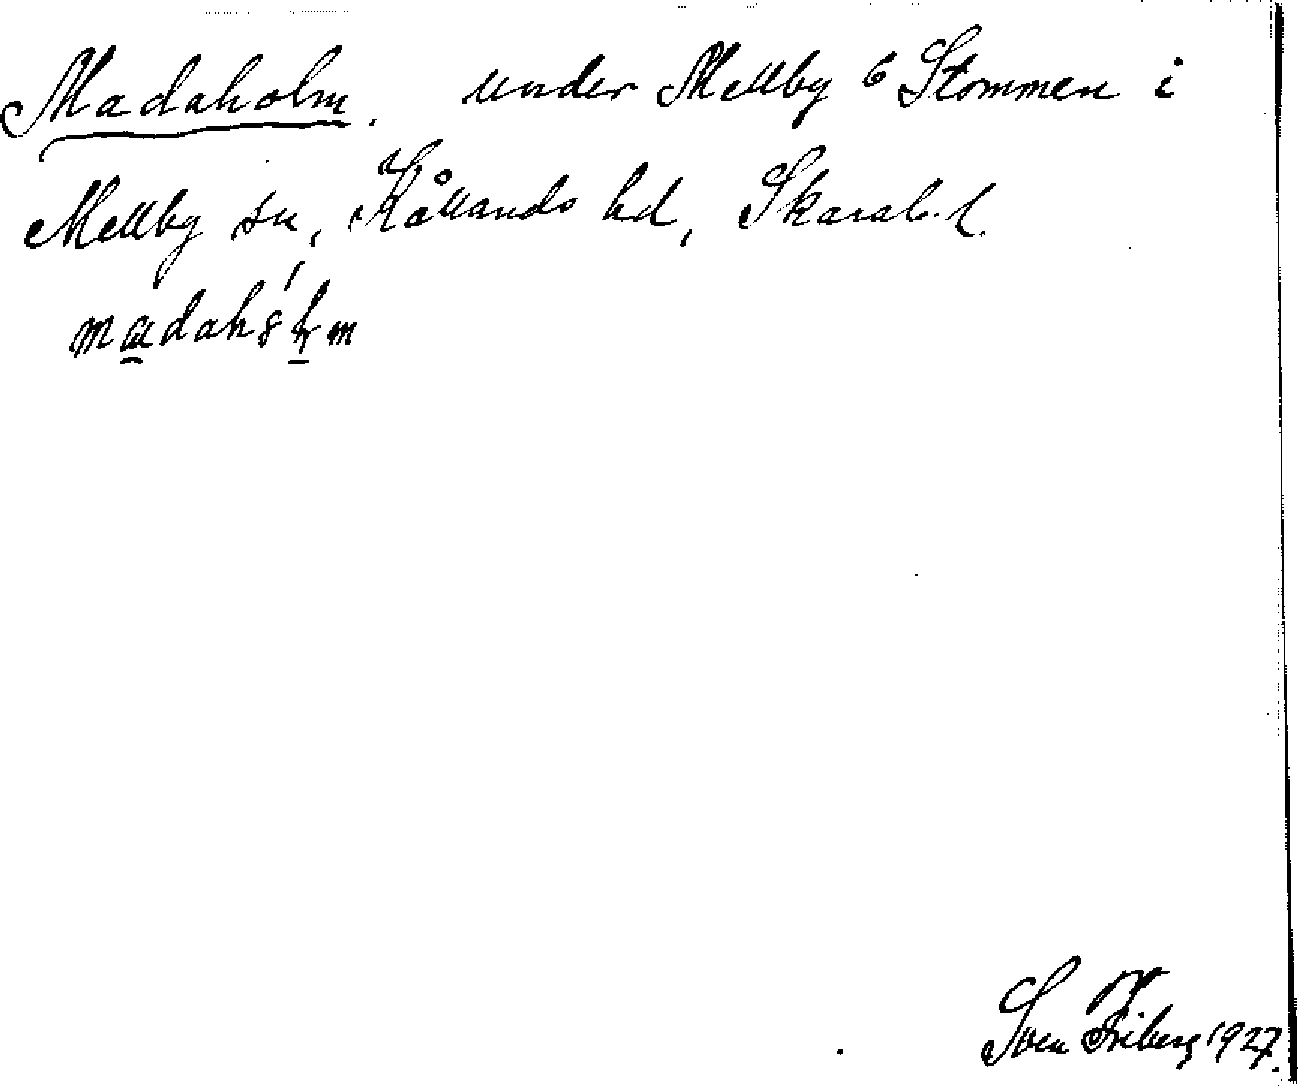 Madaholm. under Mellby 6 Stommen i
Mellby sn, Kållands hd, Skarab. l.
Sven Friberg 1927.